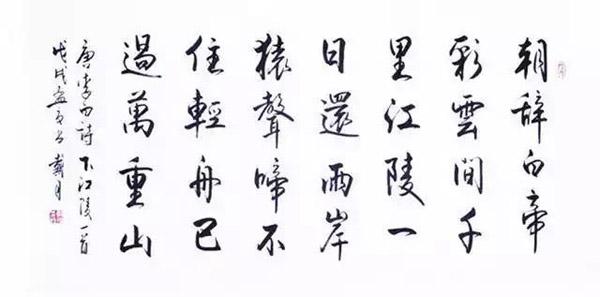 朝辞白帝
彩雲間千
里江陵一
日還兩岸
猿聲啼不
住輕舟已
過萬重山
唐李白詩 下江陵一首
戊戌孟夏 戴月